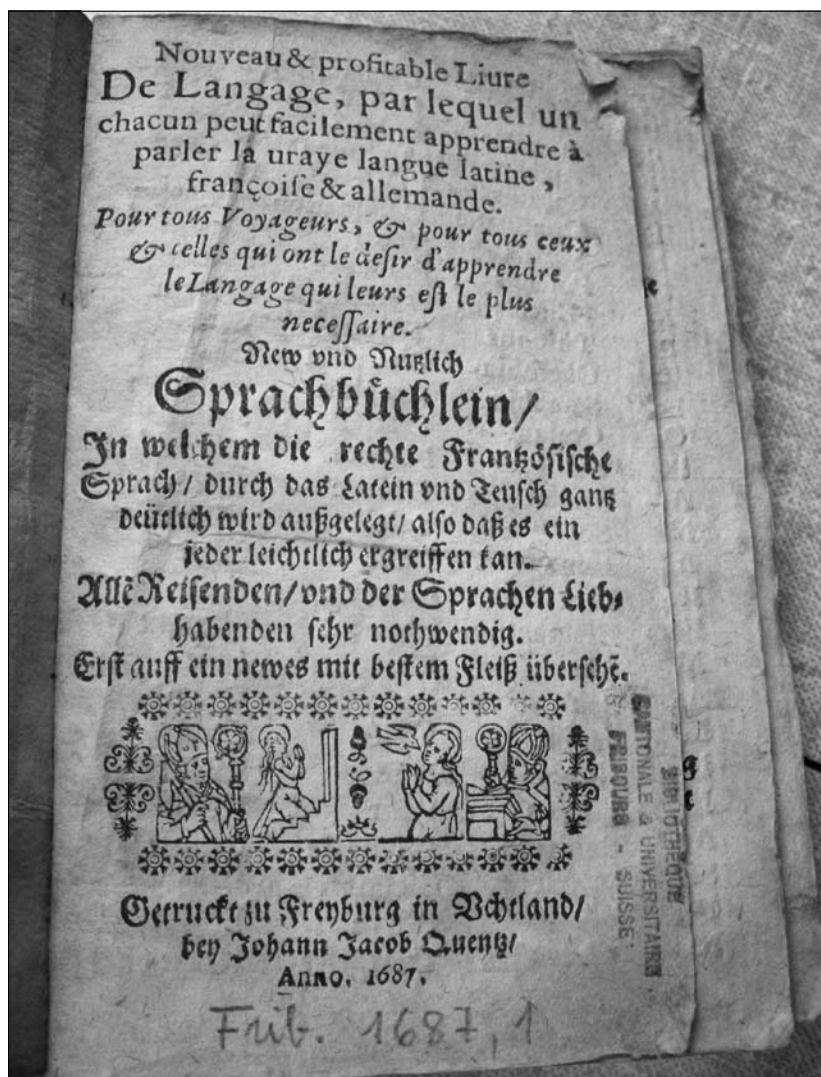 Nouveau & profitable Liure
De Langage, par lequel un
chacun peut facilement apprendre à
parler la uraye langue latine,
françoiſe & allemande.
Pour tous Voyageurs, & pour tous ceux
& celles qui ont le deſir d'apprendre
le Langage qui leurs eſt le plus
neceſſaire.
New vnd Nutzlich
Sprachbüchlein/
In welchem die rechte Frantzöſiſche
Sprach/ durch das Latein vnd Teuſch gantz
deütlich wird außgelegt/ alſo daß es ein
jeder leichtlich ergreiffen kan.
Allẽ Reiſenden/ vnd der Sprachen Lieb⸗
habenden ſehr nothwendig.
Erſt auff ein newes mit beſtem Fleiß überſehẽ.
Getruckt zu Freyburg in Vchtland/
bey Johann Jacob Quentz/
Anno. 1687.
Frib. 1687, 1
BIBLIOTHEQUE
CANTONALE & UNIVERSITAIRE
FRIBOURG - SUISSE